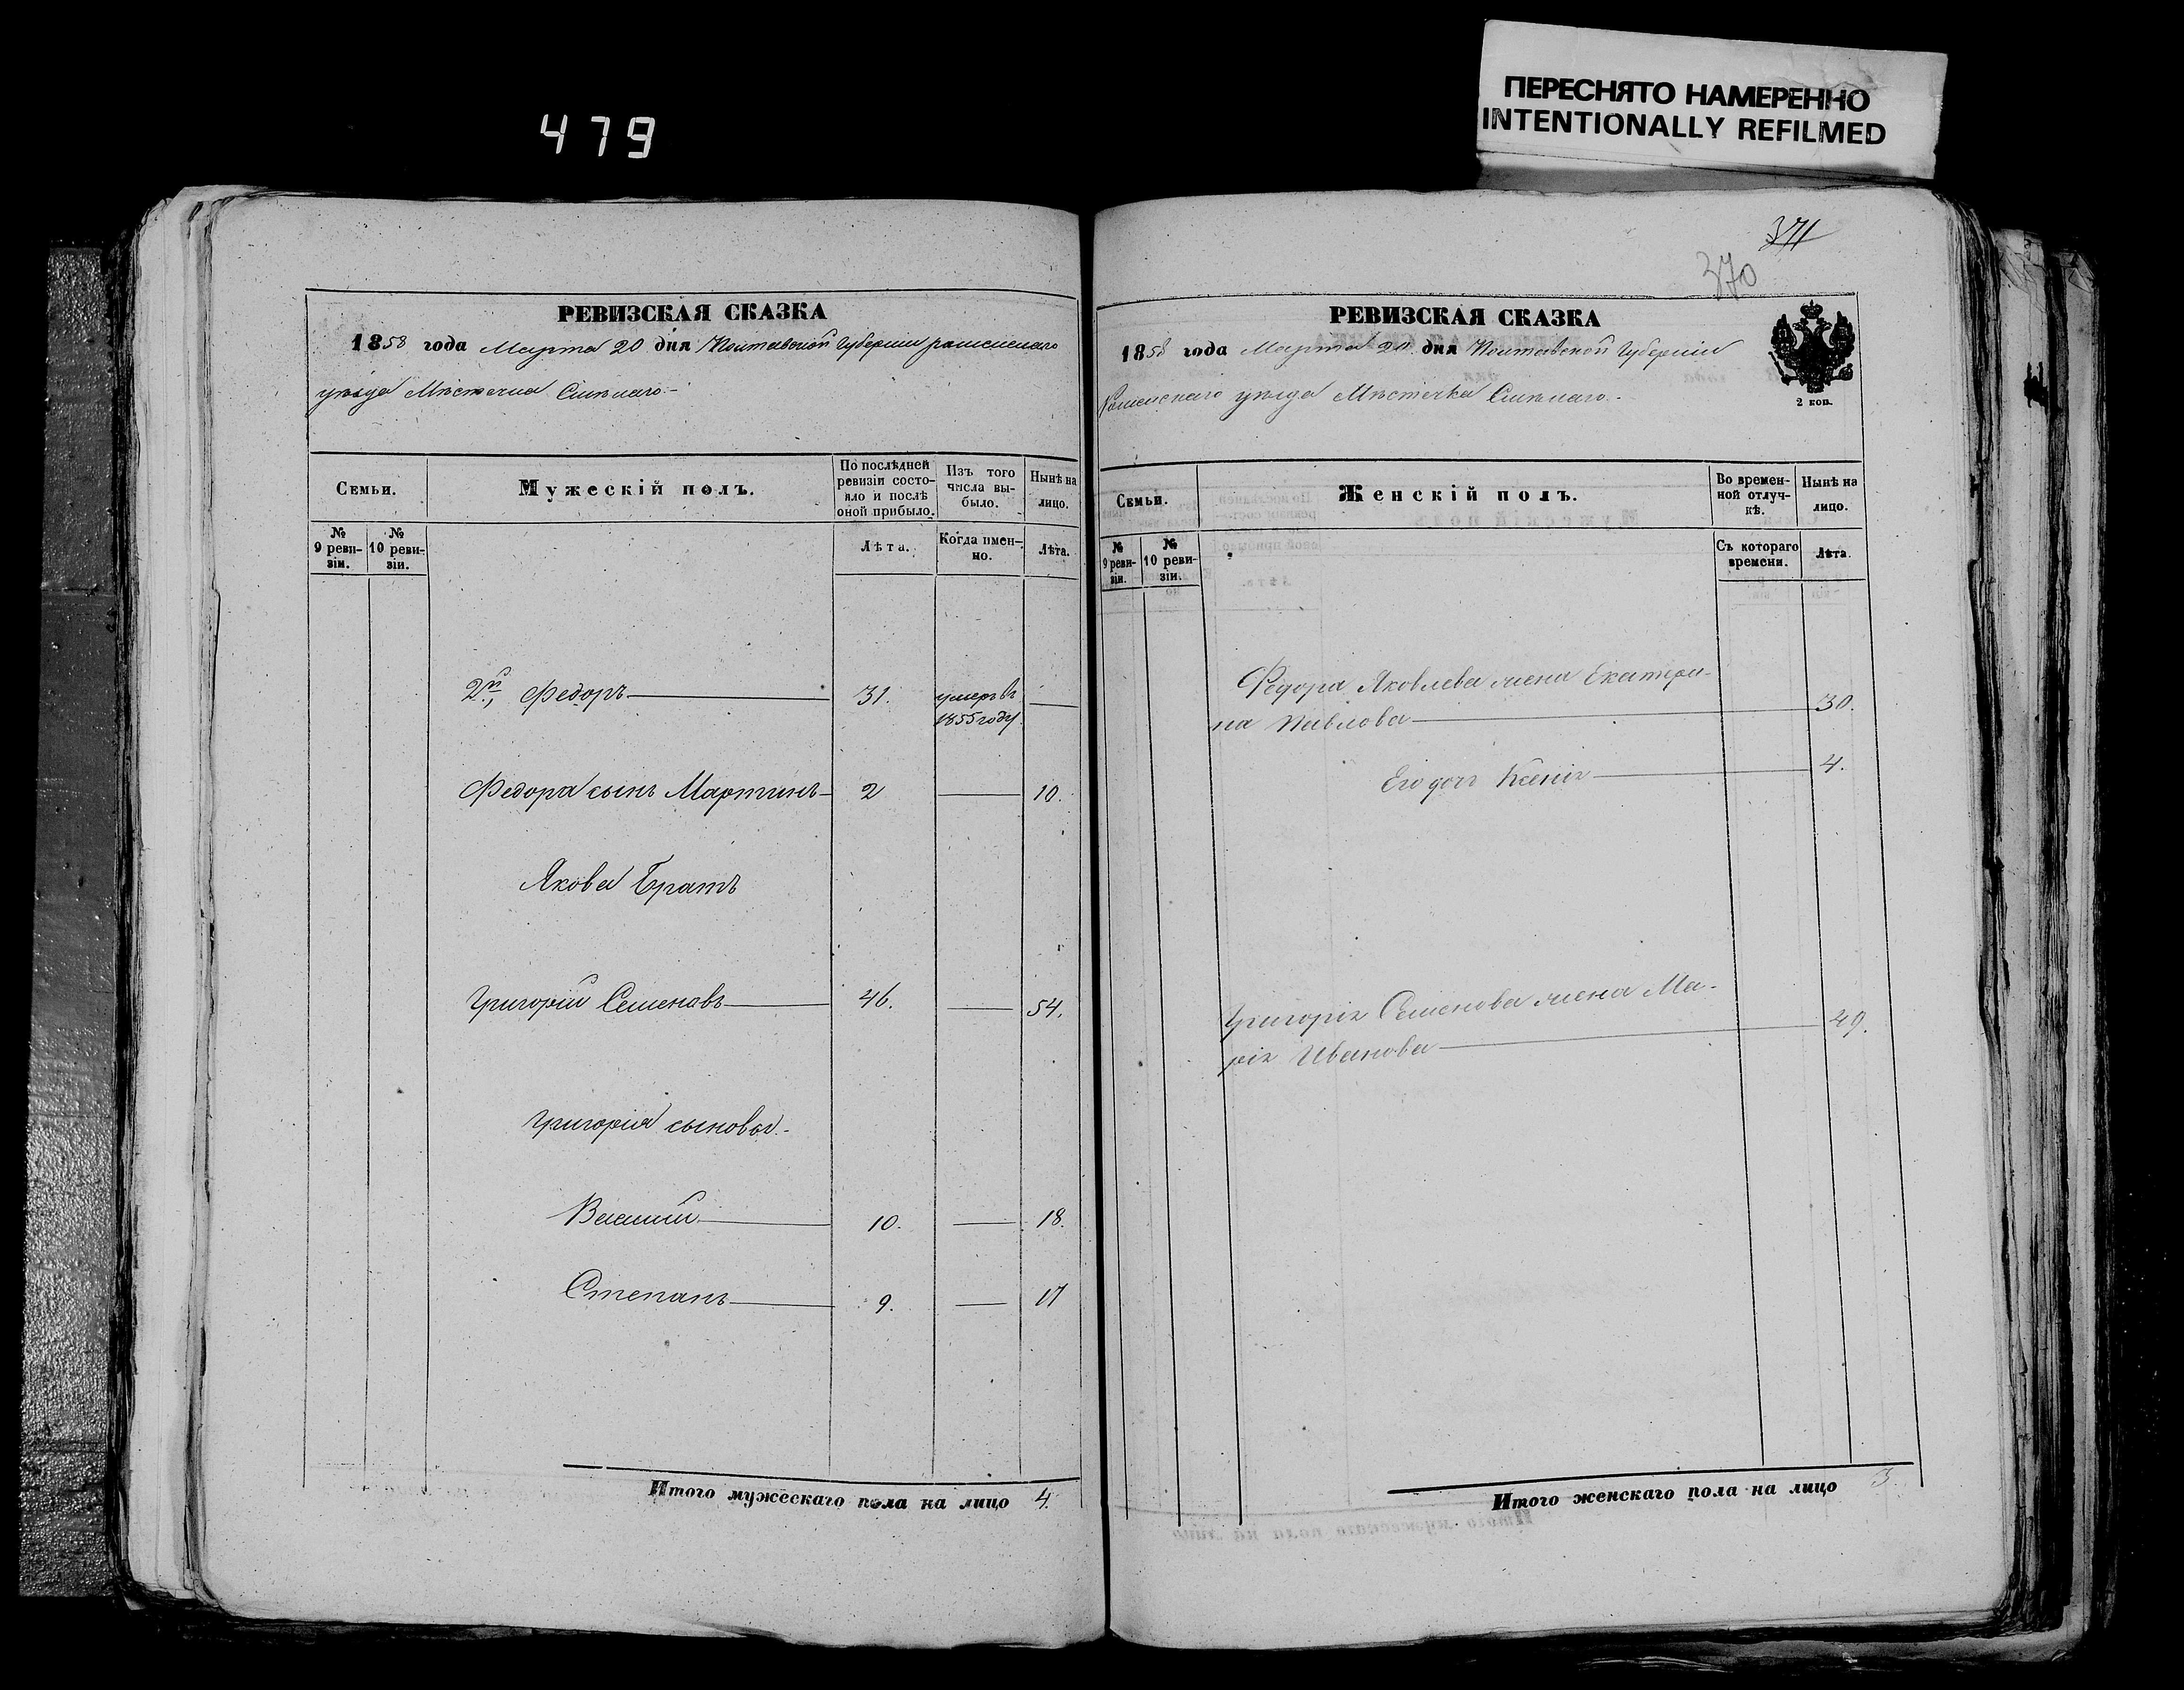 479
ПЕРЕСНЯТО НАМЕРЕННО
INTENTIONALLY REFILMED
РЕВИЗСКАЯ СКАЗКА
1858 года Марта 20 дня Полтавской Губерніи роменскаго
уѣзда Мѣстечка Смѣлаго.-
Семьи.
Мужескій полъ.
По послѣдней ревизіи состояло и послѣ оной прибыло.
Изъ того числа выбыло.
Нынѣ на лицо.
№ 9 ревизіи.
№ 10 ревизіи.
Лѣта.
Когда именно.
Лѣта.
2й, Федоръ 31. умеръ въ
1855 году.
Федора сынъ Мартинъ 2 10.
Якова Братъ
Григорій Семеновъ 46. 54.
Григорія сыновья.-
Василій 10. 18.
Степанъ 9. 17
Итого мужескаго пола на лицо 4.
371
370
РЕВИЗСКАЯ СКАЗКА
1858 года Марта 20 дня Полтавской Губерніи
Роменскаго уѣзда Мѣстечка Смѣлаго.-
2 коп.
Семьи.
Женскій полъ.
Во временной отлучкѣ.
Нынѣ на лицо.
№ 9 ревизіи.
№ 10 ревизіи.
Съ котораго времени.
Лѣта.
Федора Яковлева жена Екатери-
на Павлова 30.
Его дочь Ксенія 4.
Григорія Семенова жена Ма-
рія Иванова 49.
Итого женскаго пола на лицо 3.